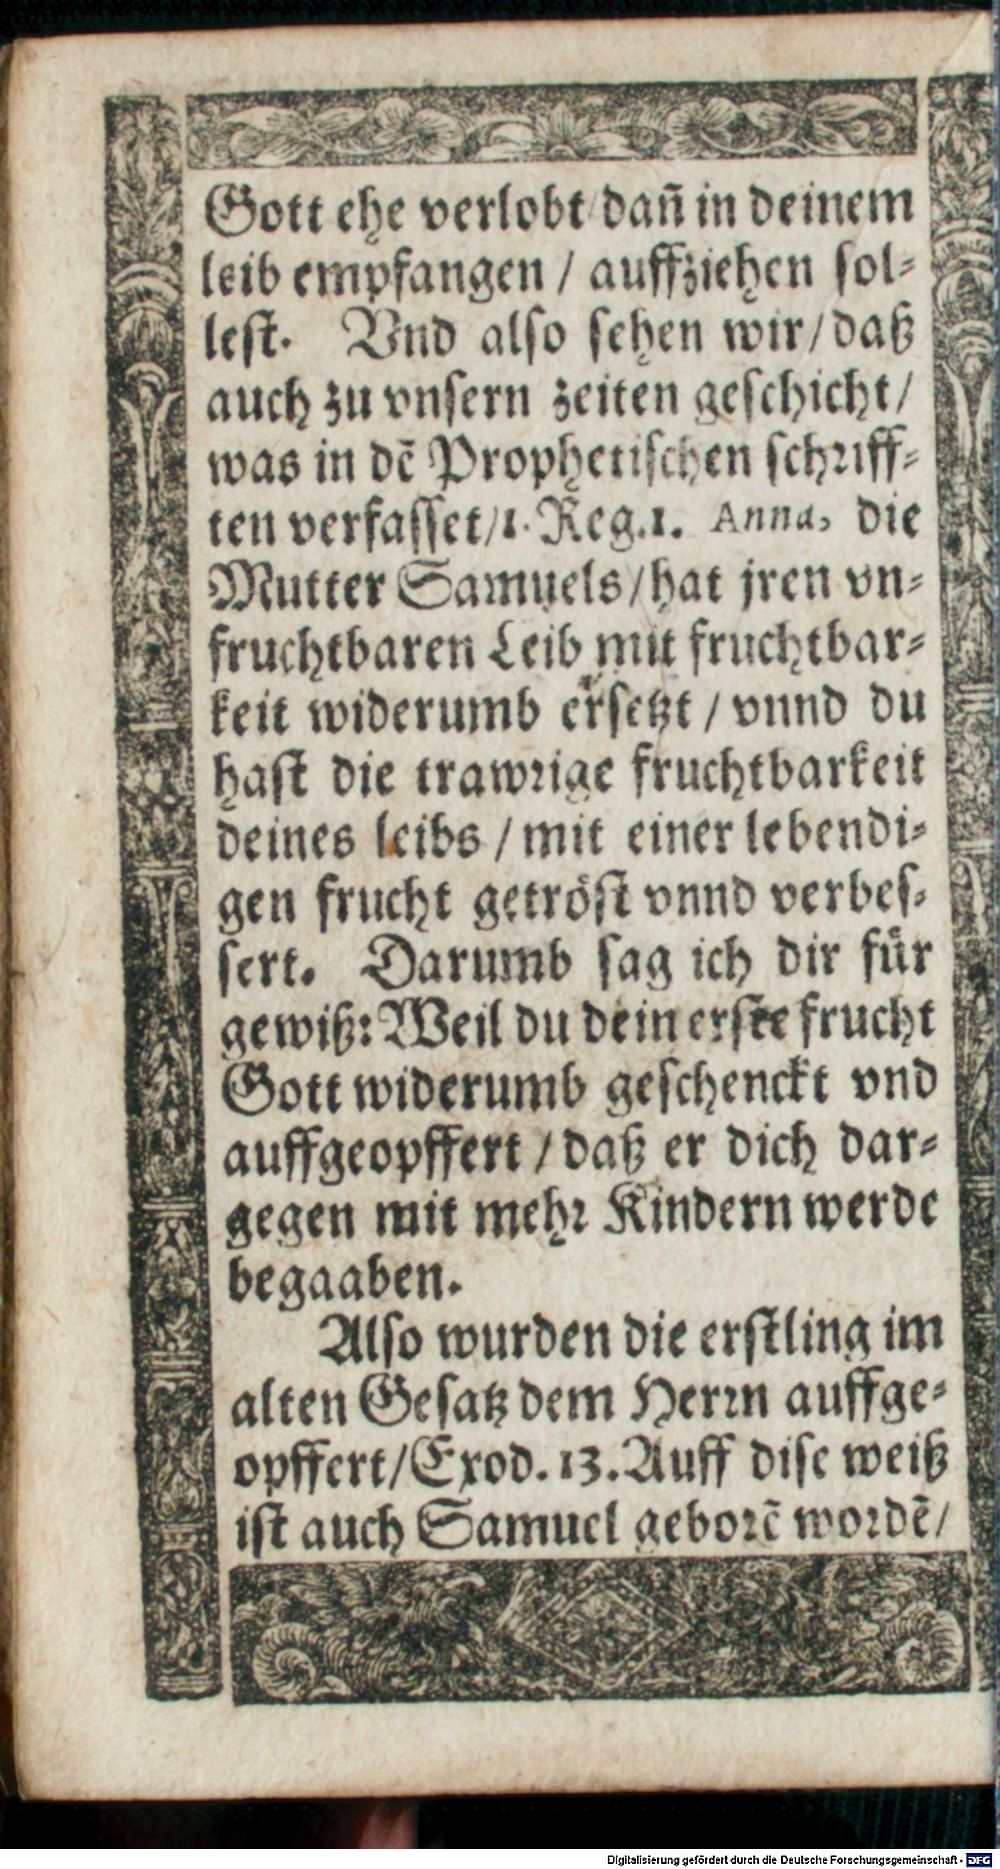 Gott ehe verlobt / dañ in deinem
leib empfangen / auffziehen sol-
lest. Vnd also sehen wir / daß
auch zu vnsern zeiten geschicht /
was in dē Prophetischen schriff-
ten verfasset / 1. Reg. 1. Anna, die
Mutter Samuels / hat jren vn-
fruchtbaren Leib mit fruchtbar-
keit widerumb ersetzt / vnnd du
hast die trawrige fruchtbarkeit
deines leibs / mit einer lebendi-
gen frucht getröst vnnd verbes-
sert. Darumb sag ich dir für
gewiß: Weil du dein erste frucht
Gott widerumb geschenckt vnd
auffgeopffert / daß er dich dar-
gegen mit mehr Kindern werde
begaaben.
Also wurden die erstling im
alten Gesatz dem Herrn auffge-
opffert / Exod. 13. Auff dise weiß
ist auch Samuel geborē wordē /
Digitalisierung gefördert durch die Deutsche Forschungsgemeinschaft - DFG